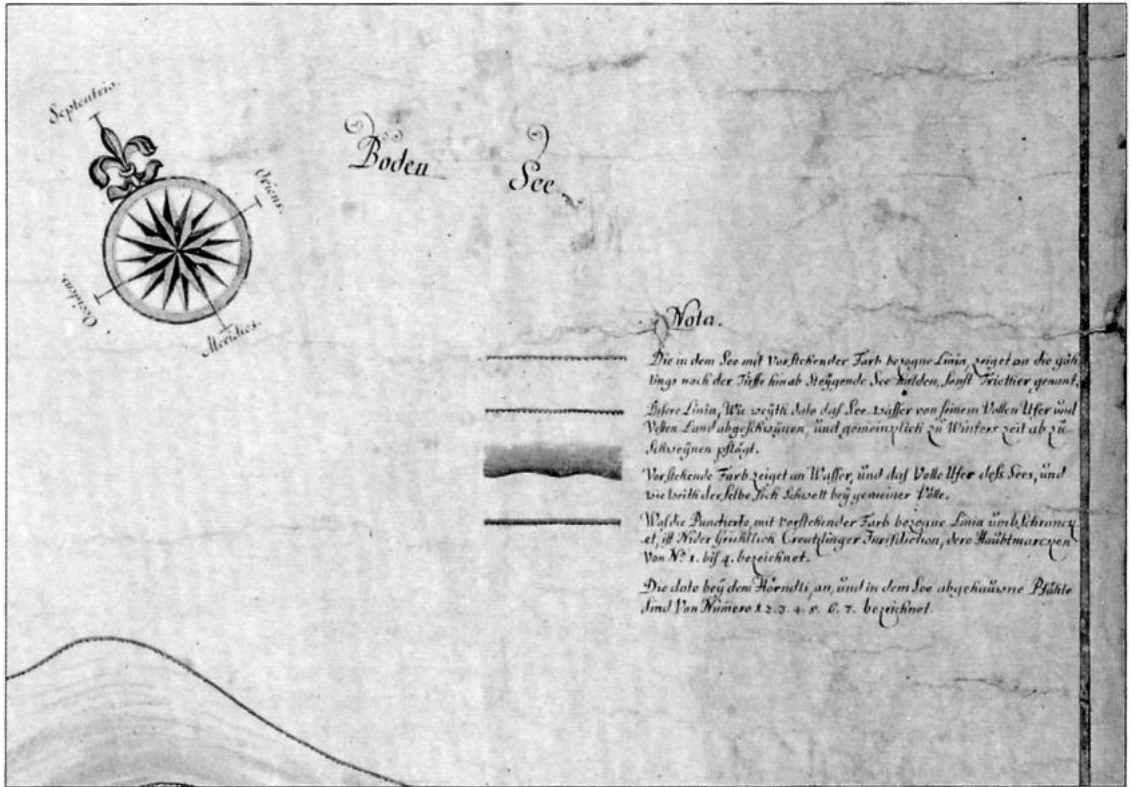 Septentrio.
Boden See
Oriens.
Occidens.
Meridies.
Nota.
Die in dem See mit Vorstehender Farb bezogne Linia, zeiget an die gäh-
lings nach der Tieffe hinab Steÿgende See Halden, sonst Triechter genant,
Disere Linia, Wie weÿth dato das See-wasser von seinem Vollen Ufer und
Vesten Land abgeschwÿnen, und gemeinglich zu Winters zeit ab zu
Schweÿnen pflägt.
Vorstehende Farb zeiget an Wasser, und das Volle Ufer dess Sees, und
wie weith derselbe sich Schwelt beÿ gemeiner Völle.
Was die Punctierte, mit vorstehender Farb bezogne Linia umb Schranck-
et, ist Nider Grichtlich Creutzlinger Jurisdiction, dero Haubtmarcken
Von Nº. 1. bis 4. bezeichnet.
Die dato beÿ dem Hörndli, an, und in dem See abgehauwne Pfähle
sind Von Numero 1. 2. 3. 4. 5. 6. 7. bezeichnet.